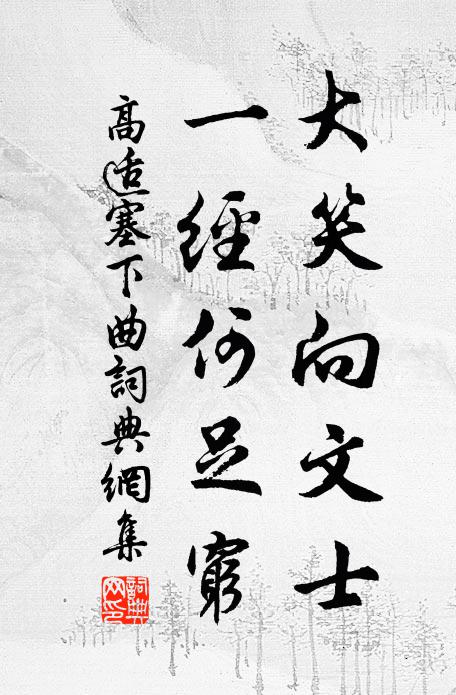 大笑向文士
一經何足窮
高适塞下曲詞典網集
詞典網印